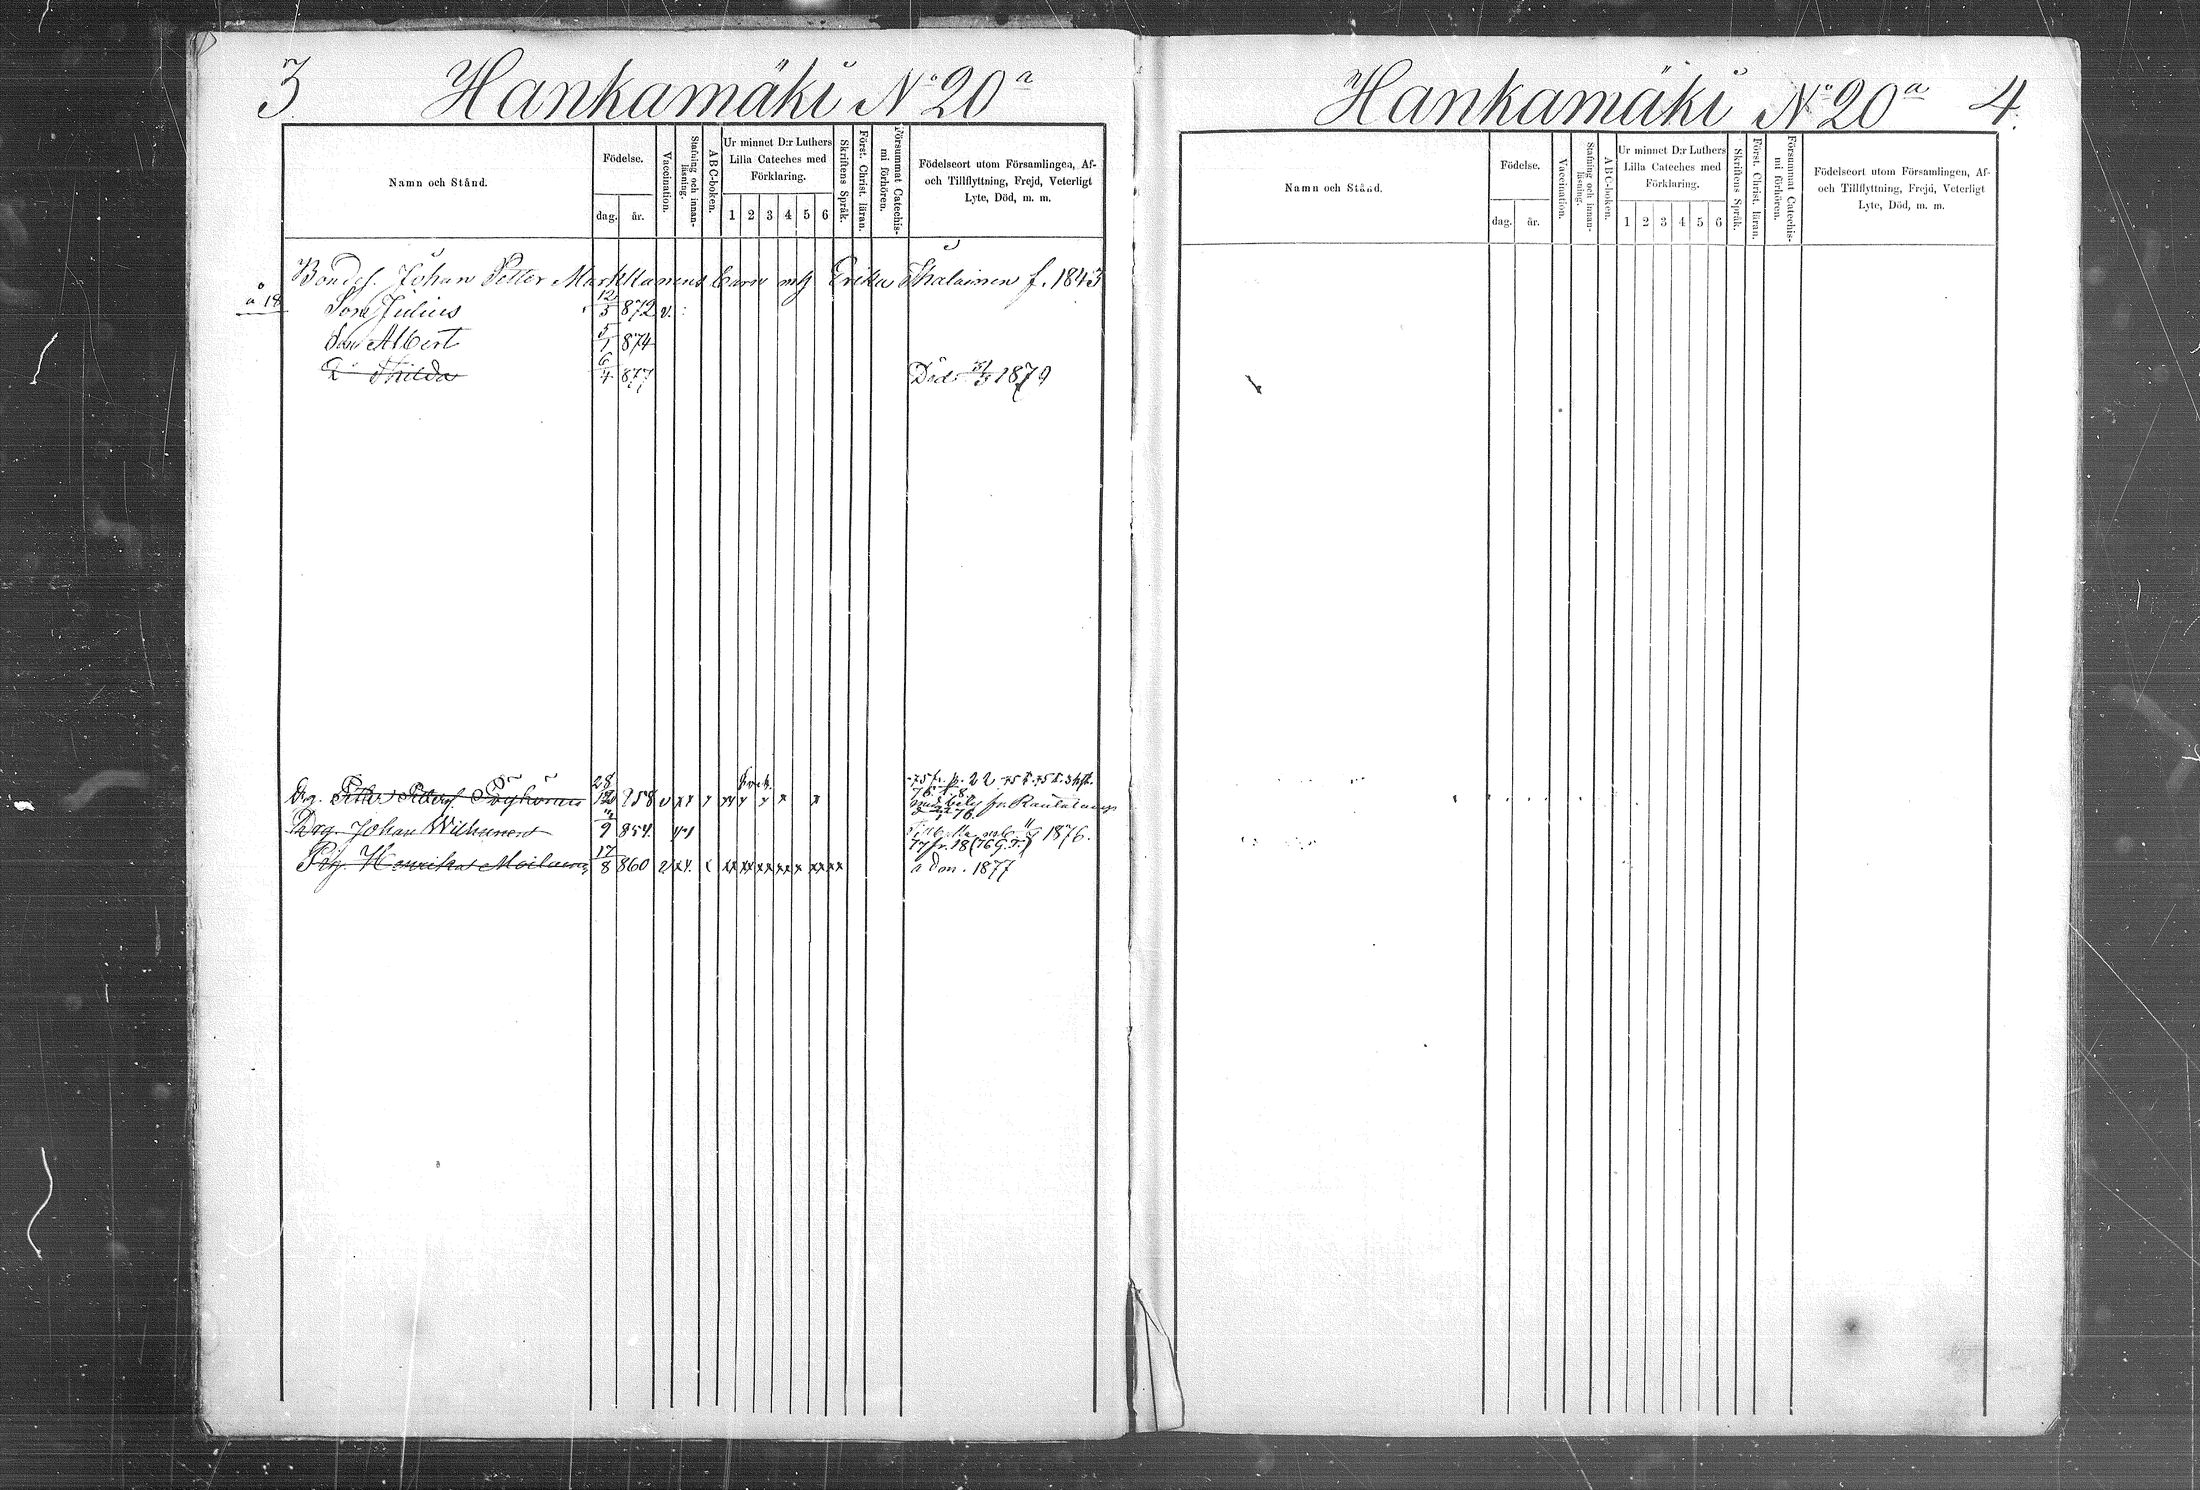 3
Hankamäki No 20 a
Namn och Stånd.
Födelse.
dag.
år.
Vaccination.
Stafning och innan-
läsning.
ABC-boken.
Ur minnet D:r Luthers
Lilla Cateches med
Förklaring.
1 2 3 4 5 6
Skriftens Språk.
Först. Christ. läran.
Försummat Catechis-
mi förhören.
Födelseort utom Församlingen, Af-
och Tillflyttning, Frejd, Veterligt
Lyte, Död, m. m.
Bondes. Johan Petter Markkanens barn m. Erika Thalainen f. 1843
å 18
Son Julius 12/5 872 v.
Son Albert 5/1 874
D. Thilda 6/4 877 Död 1879
28
Drg. Petter 12 858 v xx x
Drg. Johan Wilhunen 9 854. 1876.
77 fr. 18 (76 G.T.)
Pig. Henrika Moilanen 17/8 860 v xx. a don. 1877
Hankamäki No 20 a 4.
Namn och Stånd.
Födelse.
dag.
år.
Vaccination.
Stafning och innan-
läsning.
ABC-boken.
Ur minnet D:r Luthers
Lilla Cateches med
Förklaring.
1 2 3 4 5 6
Skriftens Språk.
Först. Christ. läran.
Försummat Catechis-
mi förhören.
Födelseort utom Församlingen, Af-
och Tillflyttning, Frejd, Veterligt
Lyte, Död, m. m.